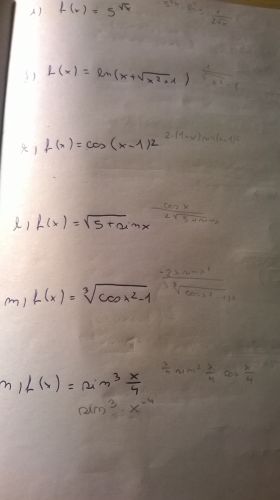 f(x) = 5^√x
f(x) = ln(x+√x²+1)
k, f(x) = cos(x-1)²
l, f(x) = √5+sinx cosx / 2√5+sinx
m, f(x) = ∛cosx²-1
n, f(x) = sin³ x/4 3/4 sin² x/4 cos x/4
sin³ · x⁻⁴